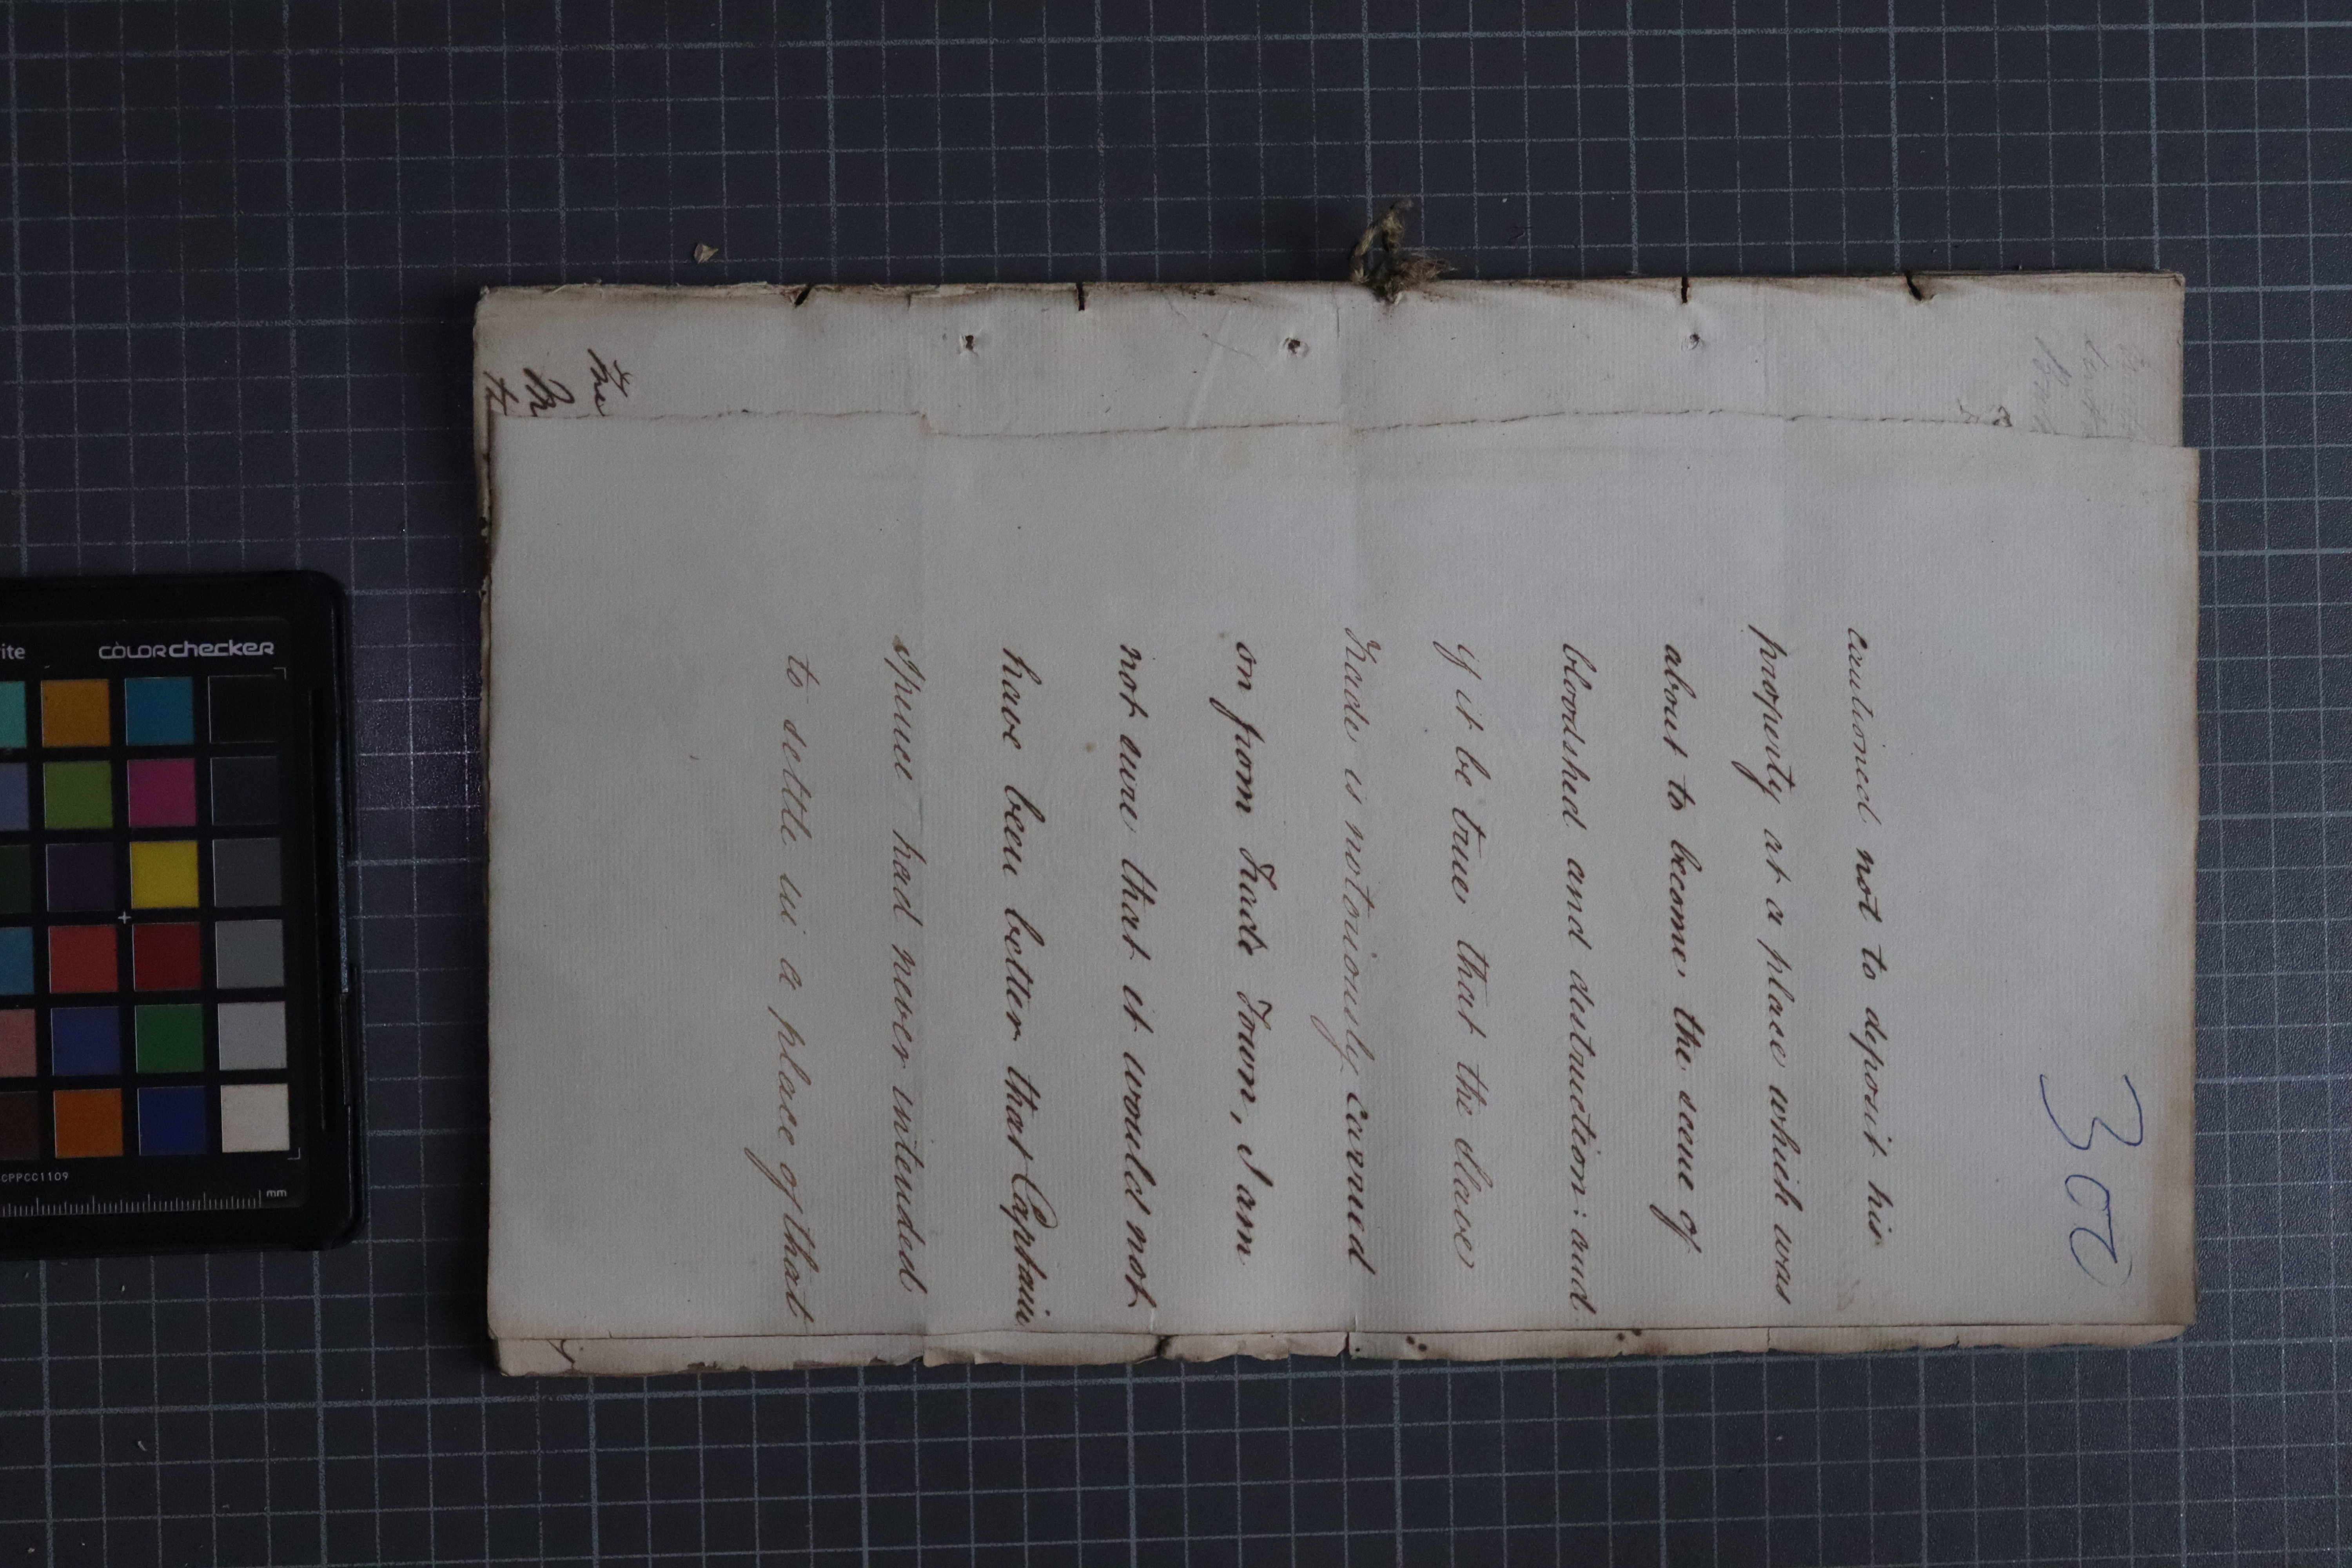 300
cautioned not to deposit his
property at a place which was
about to become the scene of
bloodshed and destruction: and
if it be true that the Slave
Trade is notoriously carried
on from Trade Town, I am
not sure that it would not
have been better that Captain
Spence had never intended
to settle in a place of that
colorchecker
CPPCC1109
mm